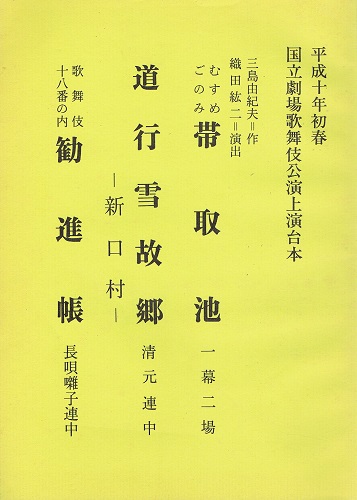 平成十年初春
国立劇場歌舞伎公演上演台本
三島由紀夫＝作
織田紘二＝演出
むすめ
ごのみ
帯取池
一幕二場
道行雪故郷
―新口村―
清元連中
歌舞伎
十八番の内
勧進帳
長唄囃子連中